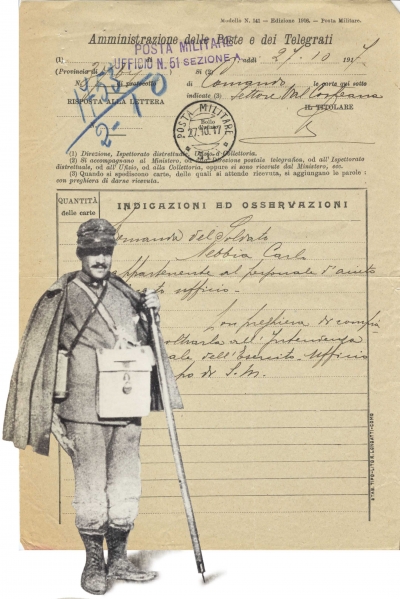 Modello N. 541 - Edizione 1906. - Posta Militare.
Amministrazione delle Poste e dei Telegrafi
POSTA MILITARE
UFFICIO N. 51 SEZIONE A
(1)
addì 27-10 1917
(Provincia di
N. di protocollo
Si (2)
Comando
le carte qui sotto
RISPOSTA ALLA LETTERA
indicate (3) Settore Val
IL TITOLARE
2-10
POSTA MILITARE
Bollo
27.10.17
(1) Direzione, Ispettorato distrettuale, Ufficio o Collettoria.
(2) Si accompagnano al Ministero, od alla Direzione postale telegrafica, od all'Ispettorato
distrettuale, od all'Ufficio, od alla Collettoria, oppure si sono ricevute dal Ministero, ecc.
(3) Quando si spediscono carte, delle quali si attende ricevuta, si aggiungano le parole:
con preghiera di darne ricevuta.
QUANTITÀ
delle carte
INDICAZIONI ED OSSERVAZIONI
Domanda del Soldato
Nebbia Carlo
appartenente al personale d'aiuto
ufficio.
Con preghiera di
all'Intendenza
dell'Esercito Ufficio
di S. M.